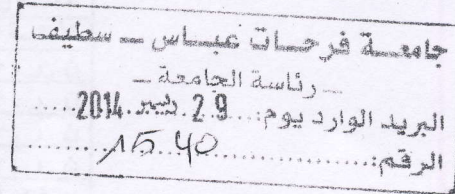 جامعــة فرحــات عبــاس ــ سطيف
ــ رئاسة الجامعة ــ
البريد الوارد يوم: ....29 ديسمبر 2014......
الرقم: ........1540........